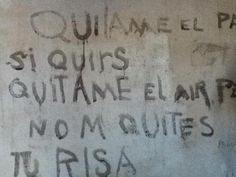 QUITAME EL PA
Si QUIRS
QUITAME EL AIR PE
NO M QUITES
TU RISA